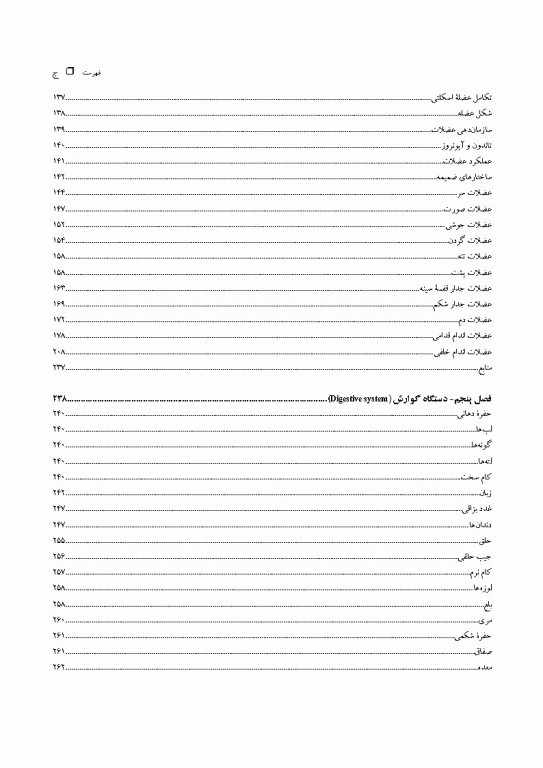 فهرست ❒ ج
تکامل عضلۀ اسکلتی....................۱۳۷
شکل عضله....................۱۳۸
سازمان‌دهی عضلات....................۱۳۹
تاندون و آپونروز....................۱۴۰
عملکرد عضلات....................۱۴۱
ساختارهای ضمیمه....................۱۴۲
عضلات سر....................۱۴۴
عضلات صورت....................۱۴۷
عضلات جوشی....................۱۵۲
عضلات گردن....................۱۵۴
عضلات تنه....................۱۵۸
عضلات پشت....................۱۵۸
عضلات جدار قفسۀ سینه....................۱۶۳
عضلات جدار شکم....................۱۶۹
عضلات دم....................۱۷۲
عضلات اندام قدامی....................۱۷۸
عضلات اندام خلفی....................۲۰۸
منابع....................۲۳۷
فصل پنجم- دستگاه گوارش (Digestive system)....................۲۳۸
حفرۀ دهانی....................۲۴۰
لب‌ها....................۲۴۰
گونه‌ها....................۲۴۰
لثه‌ها....................۲۴۰
کام سخت....................۲۴۰
زبان....................۲۴۲
غدد بزاقی....................۲۴۷
دندان‌ها....................۲۴۷
حلق....................۲۵۵
جیب حلقی....................۲۵۶
کام نرم....................۲۵۷
لوزه‌ها....................۲۵۸
بلع....................۲۵۸
مری....................۲۶۰
حفرۀ شکمی....................۲۶۱
صفاق....................۲۶۱
معده....................۲۶۲